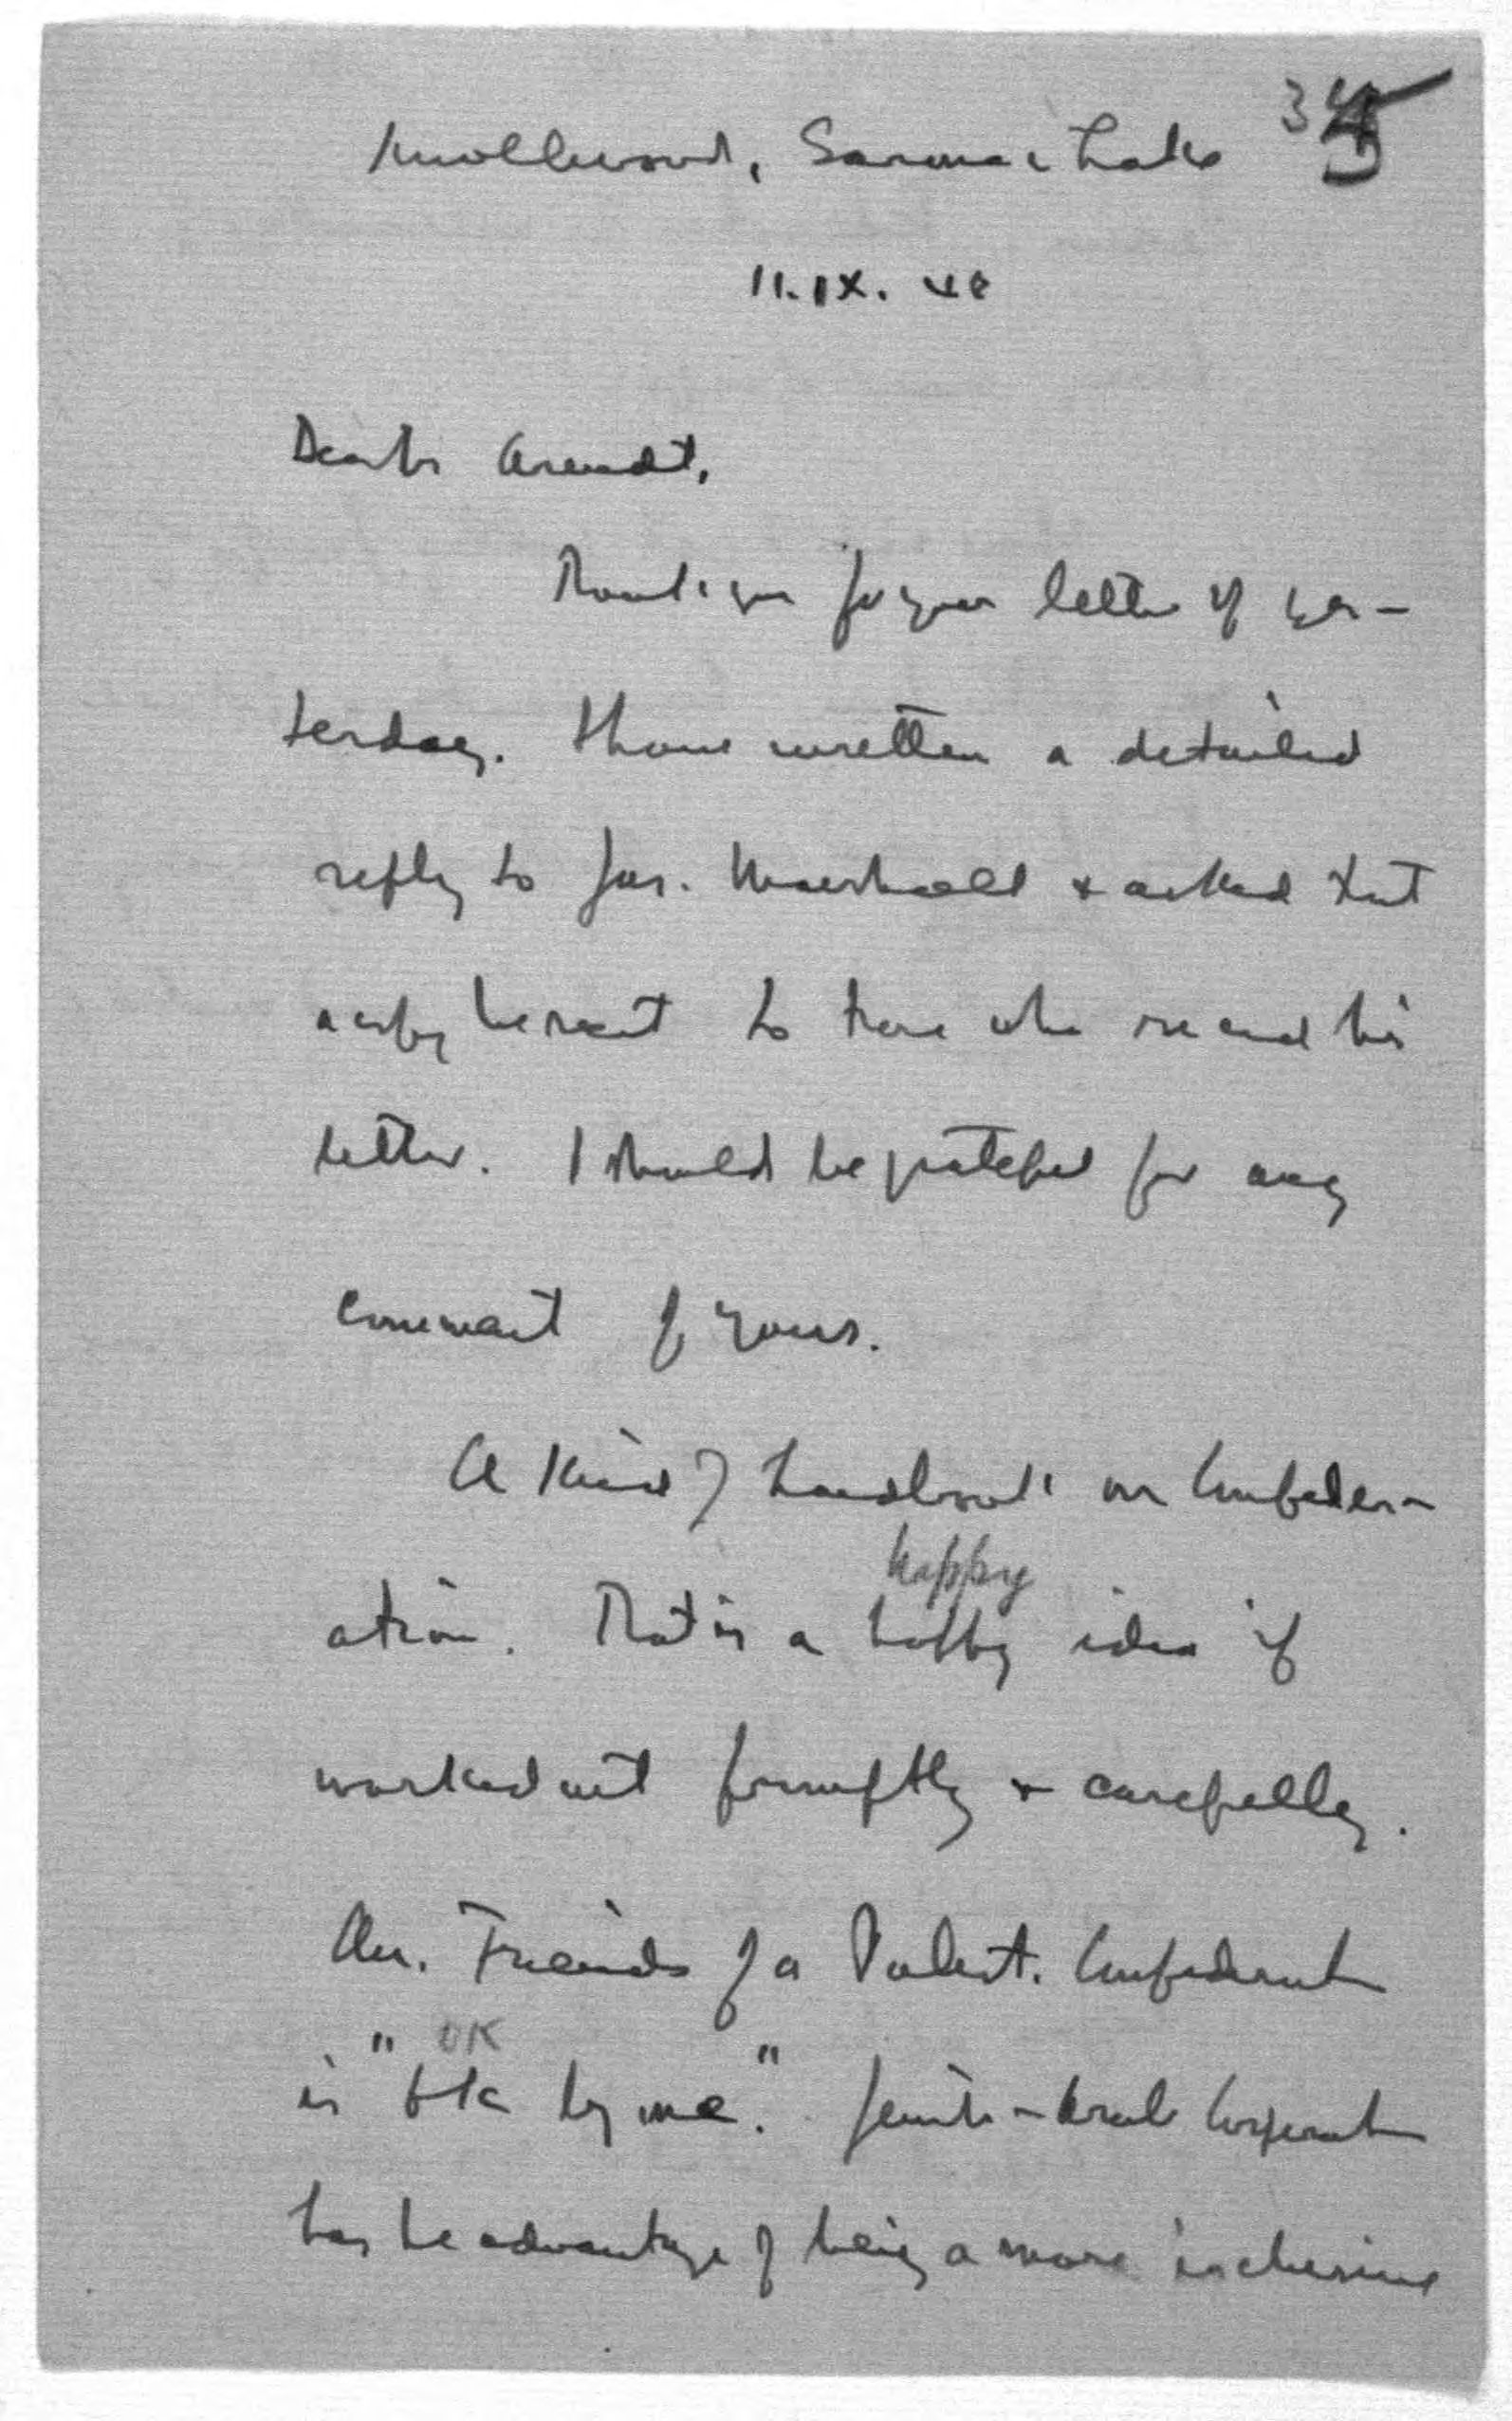 34
Knollwood, Saranac Lake
11. IX. 48
Dear Dr Arendt,
Thank you for your letter of yes-
terday. I have written a detailed
reply to Jas. Marshall & asked that
a copy be sent to those who received his
letter. I should be grateful for any
comment of yours.
A kind of handbook on Confeder-
happy
ation. That is a happy idea if
worked out promptly & carefully.
Am. Friends of a Palest. Confederation
OK
is "OK by me." Jewish-Arab Cooperation
has the advantage of being a more inclusive